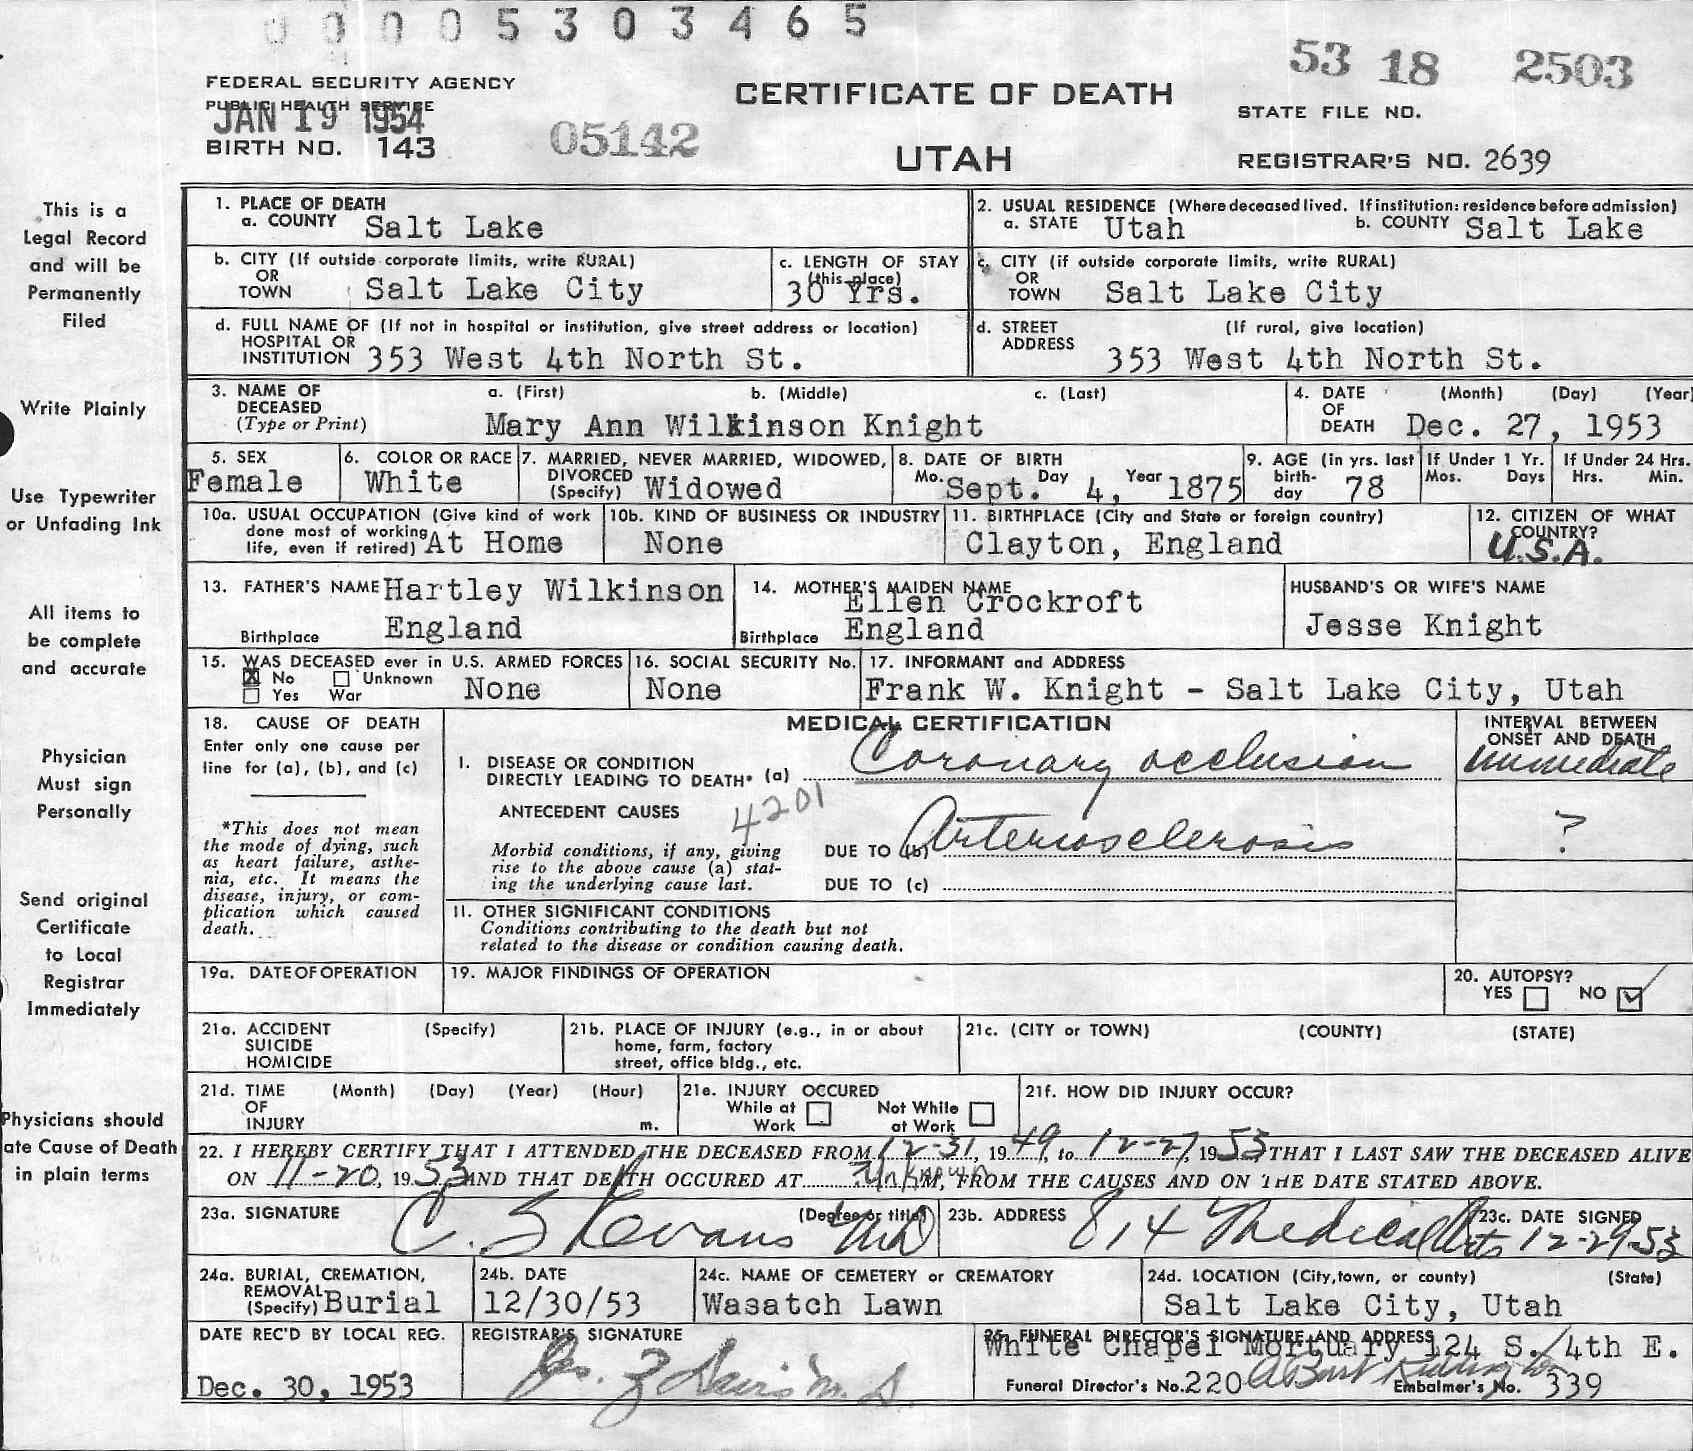 0 0 0 0 5 3 0 3 4 6 5
53 18 2503
FEDERAL SECURITY AGENCY
PUBLIC HEALTH SERVICE
JAN 19 1954
BIRTH NO. 143
05142
CERTIFICATE OF DEATH
UTAH
STATE FILE NO.
REGISTRAR'S NO. 2639
This is a
Legal Record
and will be
Permanently
Filed
Write Plainly
Use Typewriter
or Unfading Ink
All items to
be complete
and accurate
Physician
Must sign
Personally
Send original
Certificate
to Local
Registrar
Immediately
Physicians should
ate Cause of Death
in plain terms
1. PLACE OF DEATH
a. COUNTY Salt Lake
2. USUAL RESIDENCE (Where deceased lived. If institution: residence before admission)
a. STATE Utah b. COUNTY Salt Lake
b. CITY (If outside corporate limits, write RURAL)
OR
TOWN Salt Lake City
c. LENGTH OF STAY
(this place)
30 Yrs.
c. CITY (if outside corporate limits, write RURAL)
OR
TOWN Salt Lake City
d. FULL NAME OF (If not in hospital or institution, give street address or location)
HOSPITAL OR
INSTITUTION 353 West 4th North St.
d. STREET (If rural, give location)
ADDRESS 353 West 4th North St.
3. NAME OF a. (First) b. (Middle) c. (Last)
DECEASED
(Type or Print) Mary Ann Wilkinson Knight
4. DATE (Month) (Day) (Year)
OF
DEATH Dec. 27, 1953
5. SEX
Female
6. COLOR OR RACE
White
7. MARRIED, NEVER MARRIED, WIDOWED,
DIVORCED
(Specify) Widowed
8. DATE OF BIRTH
Mo. Sept. Day 4, Year 1875
9. AGE (in yrs. last
birth-
day 78
If Under 1 Yr.
Mos. Days
If Under 24 Hrs.
Hrs. Min.
10a. USUAL OCCUPATION (Give kind of work
done most of working
life, even if retired) At Home
10b. KIND OF BUSINESS OR INDUSTRY
None
11. BIRTHPLACE (City and State or foreign country)
Clayton, England
12. CITIZEN OF WHAT
COUNTRY?
U.S.A.
13. FATHER'S NAME Hartley Wilkinson
Birthplace England
14. MOTHER'S MAIDEN NAME
Ellen Crockroft
Birthplace England
HUSBAND'S OR WIFE'S NAME
Jesse Knight
15. WAS DECEASED ever in U.S. ARMED FORCES
X No Unknown
Yes War None
16. SOCIAL SECURITY No.
None
17. INFORMANT and ADDRESS
Frank W. Knight - Salt Lake City, Utah
18. CAUSE OF DEATH
Enter only one cause per
line for (a), (b), and (c)
*This does not mean
the mode of dying, such
as heart failure, asthe-
nia, etc. It means the
disease, injury, or com-
plication which caused
death.
MEDICAL CERTIFICATION
I. DISEASE OR CONDITION
DIRECTLY LEADING TO DEATH* (a) Coronary occlusion
INTERVAL BETWEEN
ONSET AND DEATH
immediate
ANTECEDENT CAUSES 4201
Morbid conditions, if any, giving
rise to the above cause (a) stat-
ing the underlying cause last.
DUE TO (b) Arteriosclerosis ?
DUE TO (c)
11. OTHER SIGNIFICANT CONDITIONS
Conditions contributing to the death but not
related to the disease or condition causing death.
19a. DATE OF OPERATION
19. MAJOR FINDINGS OF OPERATION
20. AUTOPSY?
YES NO
21a. ACCIDENT (Specify)
SUICIDE
HOMICIDE
21b. PLACE OF INJURY (e.g., in or about
home, farm, factory
street, office bldg., etc.
21c. (CITY or TOWN) (COUNTY) (STATE)
21d. TIME (Month) (Day) (Year) (Hour)
OF
INJURY m.
21e. INJURY OCCURED
While at Work Not While at Work
21f. HOW DID INJURY OCCUR?
22. I HEREBY CERTIFY THAT I ATTENDED THE DECEASED FROM 12-31, 1949, to 12-27, 1953, THAT I LAST SAW THE DECEASED ALIVE
ON 11-20, 1953, AND THAT DEATH OCCURED AT Unknown M, FROM THE CAUSES AND ON THE DATE STATED ABOVE.
23a. SIGNATURE (Degree or title)
C. S. Evans MD
23b. ADDRESS 814 Medical Arts
23c. DATE SIGNED
12-29-53
24a. BURIAL, CREMATION,
REMOVAL
(Specify) Burial
24b. DATE
12/30/53
24c. NAME OF CEMETERY or CREMATORY
Wasatch Lawn
24d. LOCATION (City, town, or county) (State)
Salt Lake City, Utah
DATE REC'D BY LOCAL REG.
Dec. 30, 1953
REGISTRAR'S SIGNATURE
25. FUNERAL DIRECTOR'S SIGNATURE AND ADDRESS
White Chapel Mortuary 124 S. 4th E.
Funeral Director's No. 220 Embalmer's No. 339